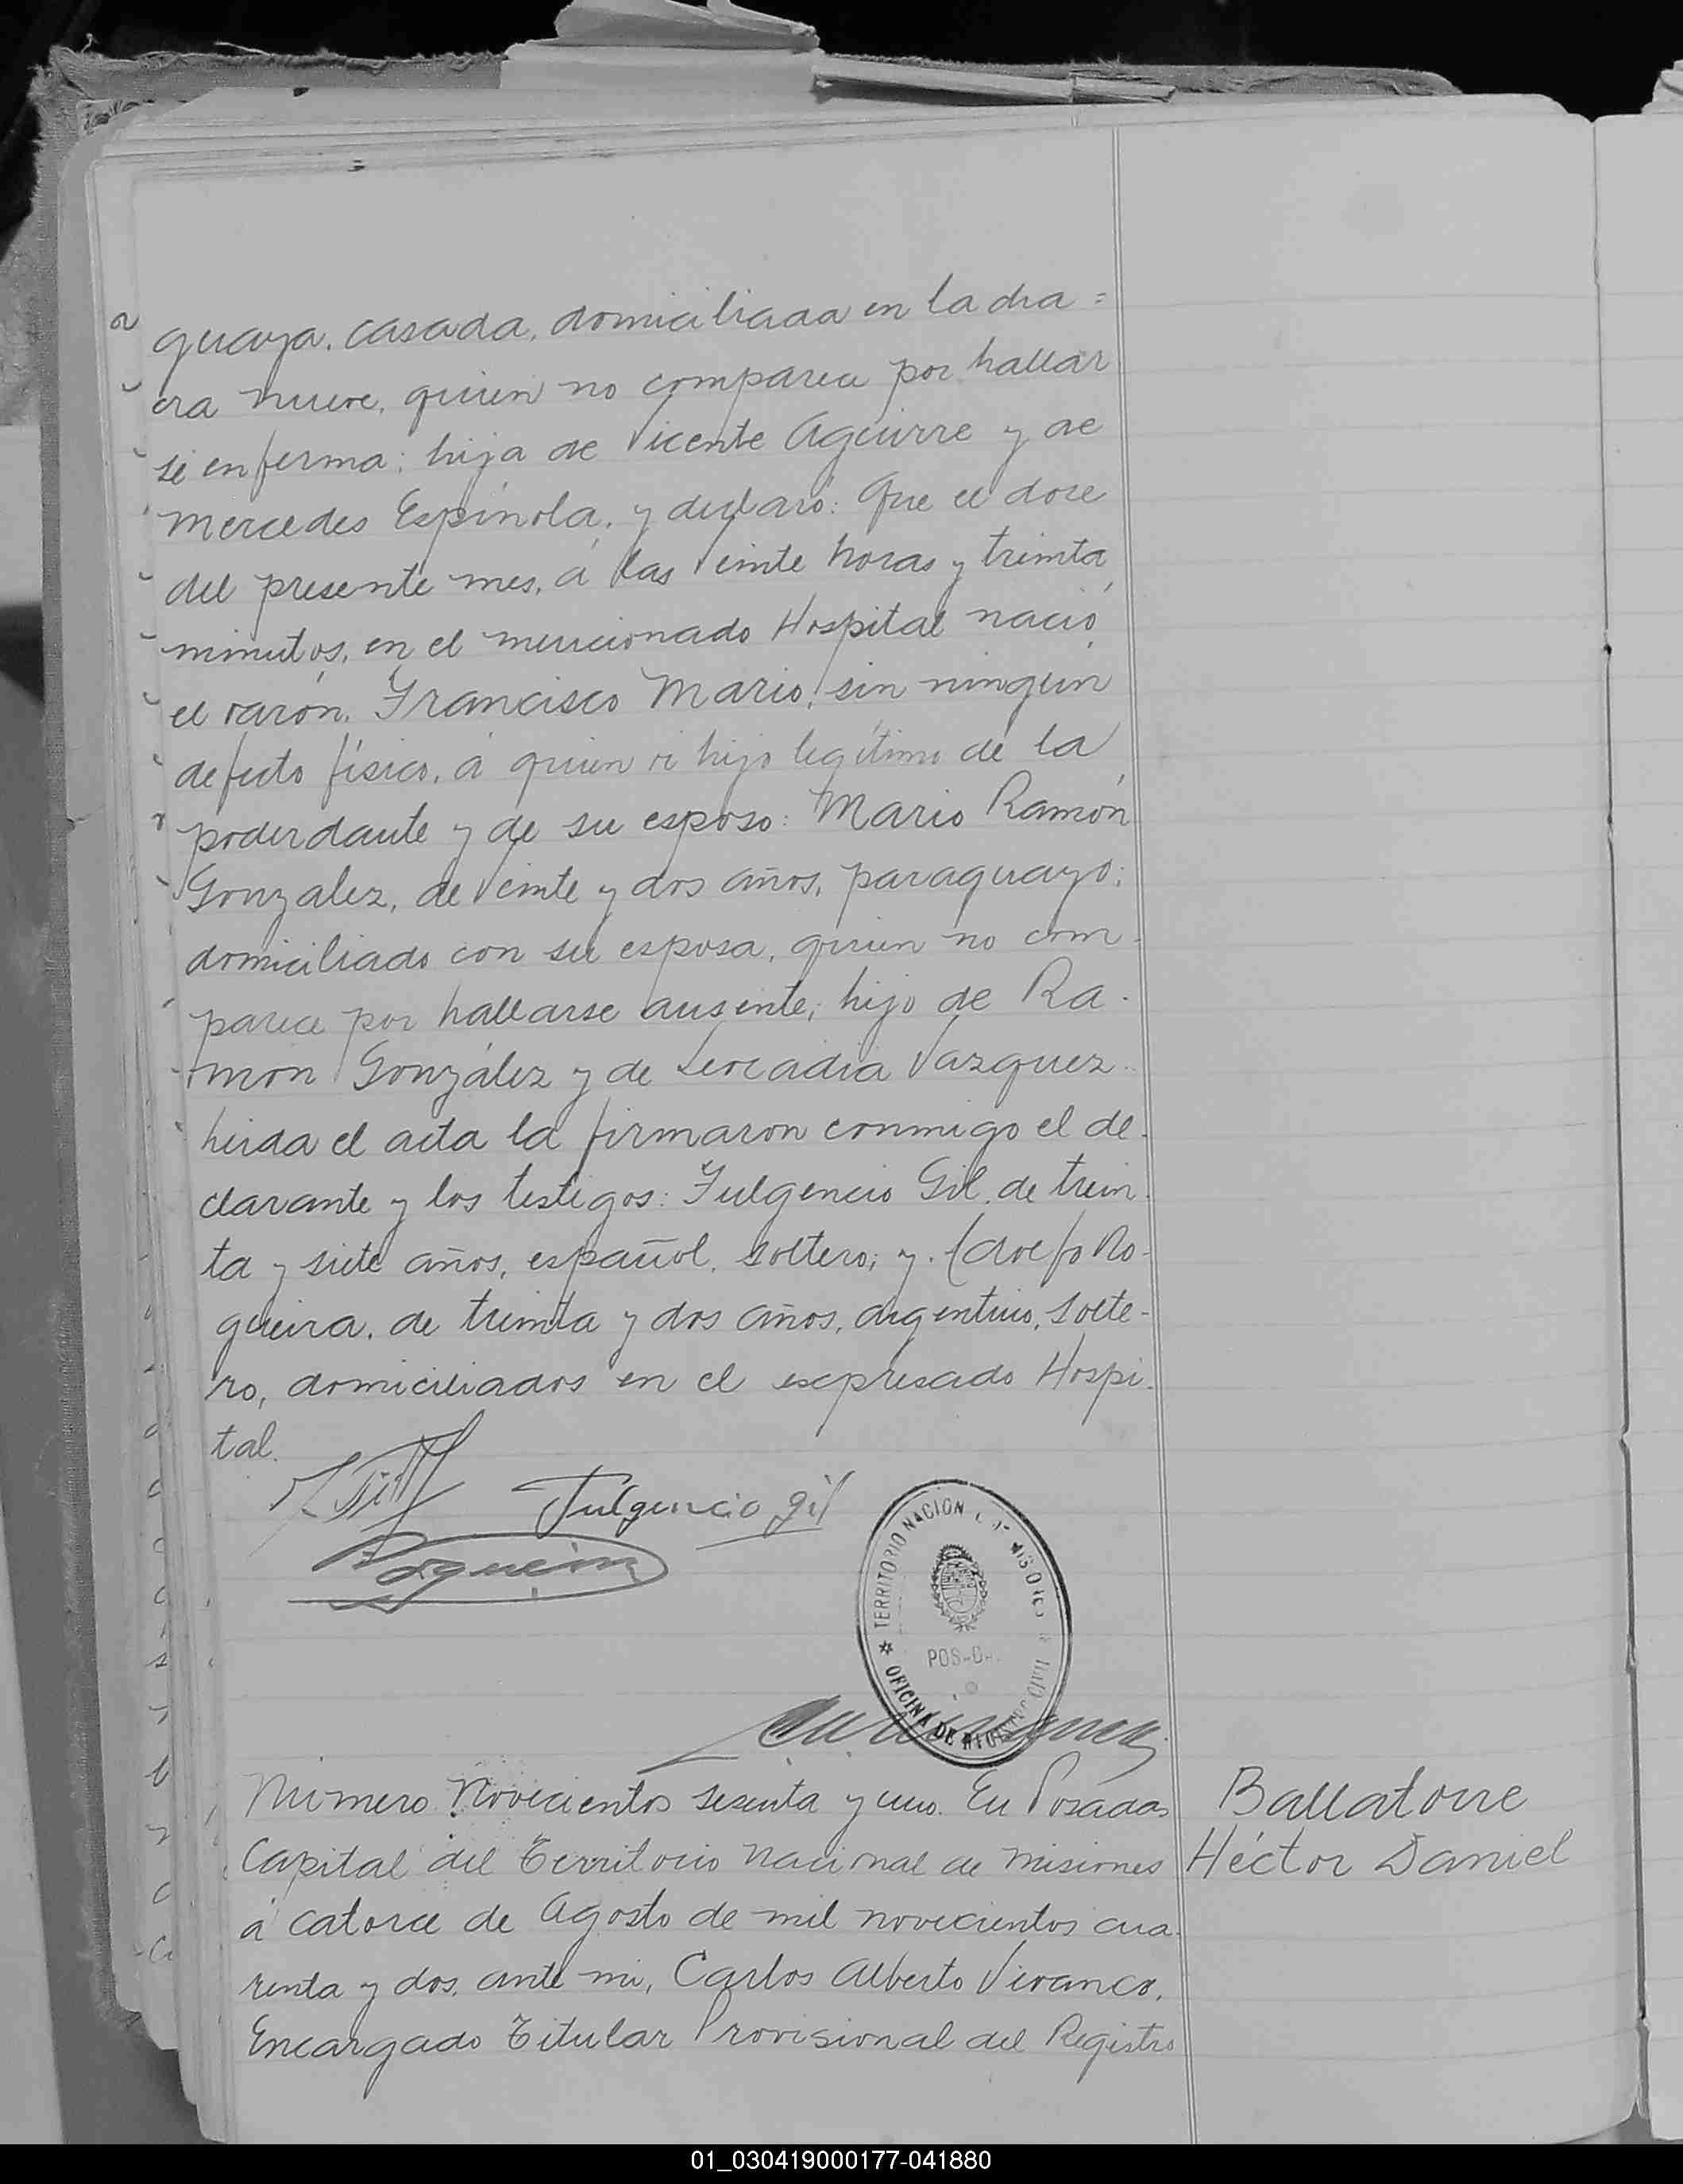 guaya, casada, domiciliada en la cha=
cra nueve, quien no comparece por hallar
se enferma; hija de Vicente Aguirre y de
Mercedes Espínola, y declaró: Que el doce
del presente mes, á las veinte horas y treinta
minutos, en el mencionado Hospital nació
el varón, Francisco Mario, sin ningún
defecto físico, á quien vi hijo legítimo de la
poderdante y de su esposo: Mario Ramón
Gonzalez, de veinte y dos años, paraguayo;
domiciliado con su esposa, quien no com-
parece por hallarse ausente; hijo de Ra-
mon González y de Leocadia Vazquez.
Leida el acta la firmaron conmigo el de-
clarante y los testigos: Fulgencio Gil, de trein-
ta y siete años, español, soltero; y Adolfo No-
gueira, de treinta y dos años, argentino, solte-
ro, domiciliados en el expresado Hospi-
tal.
Fulgencio Gil
TERRITORIO NACIONAL DE MISIONES
POSADAS
OFICINA DE REGISTRO CIVIL
Número Novecientos sesenta y uno. En Posadas
Capital del Territorio Nacional de Misiones
á catorce de Agosto de mil novecientos cua-
renta y dos, ante mi, Carlos Alberto Vivanco,
Encargado Titular Provisional del Registro
Ballatorre
Héctor Daniel
01_030419000177-041880